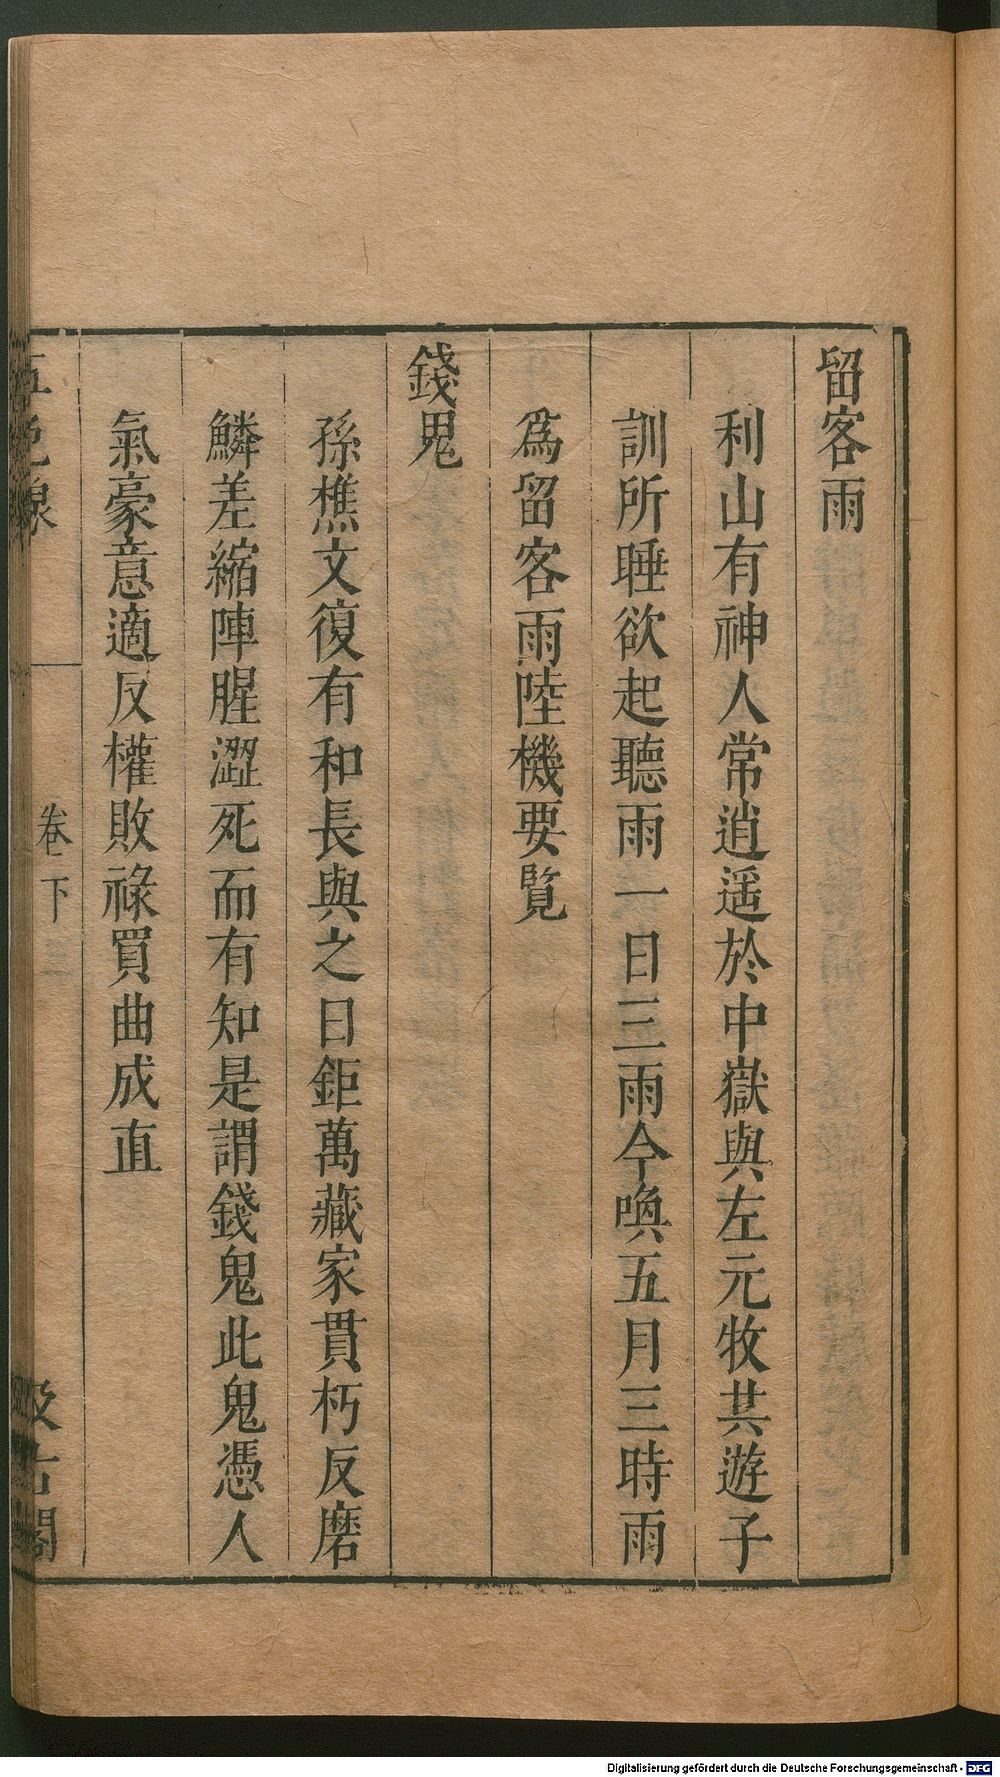 留客雨
利山有神人常逍遥於中嶽與左元牧共遊子
訓所睡欲起聽雨一日三雨今喚五月三時雨
爲留客雨陸機要覧
錢鬼
孫樵文復有和長與之曰鉅萬藏家貫朽反磨
鱗差縮陣腥澀死而有知是謂錢鬼此鬼憑人
氣豪意適反權敗祿買曲成直
五色線
卷下
汲古閣
Digitalisierung gefördert durch die Deutsche Forschungsgemeinschaft - DFG